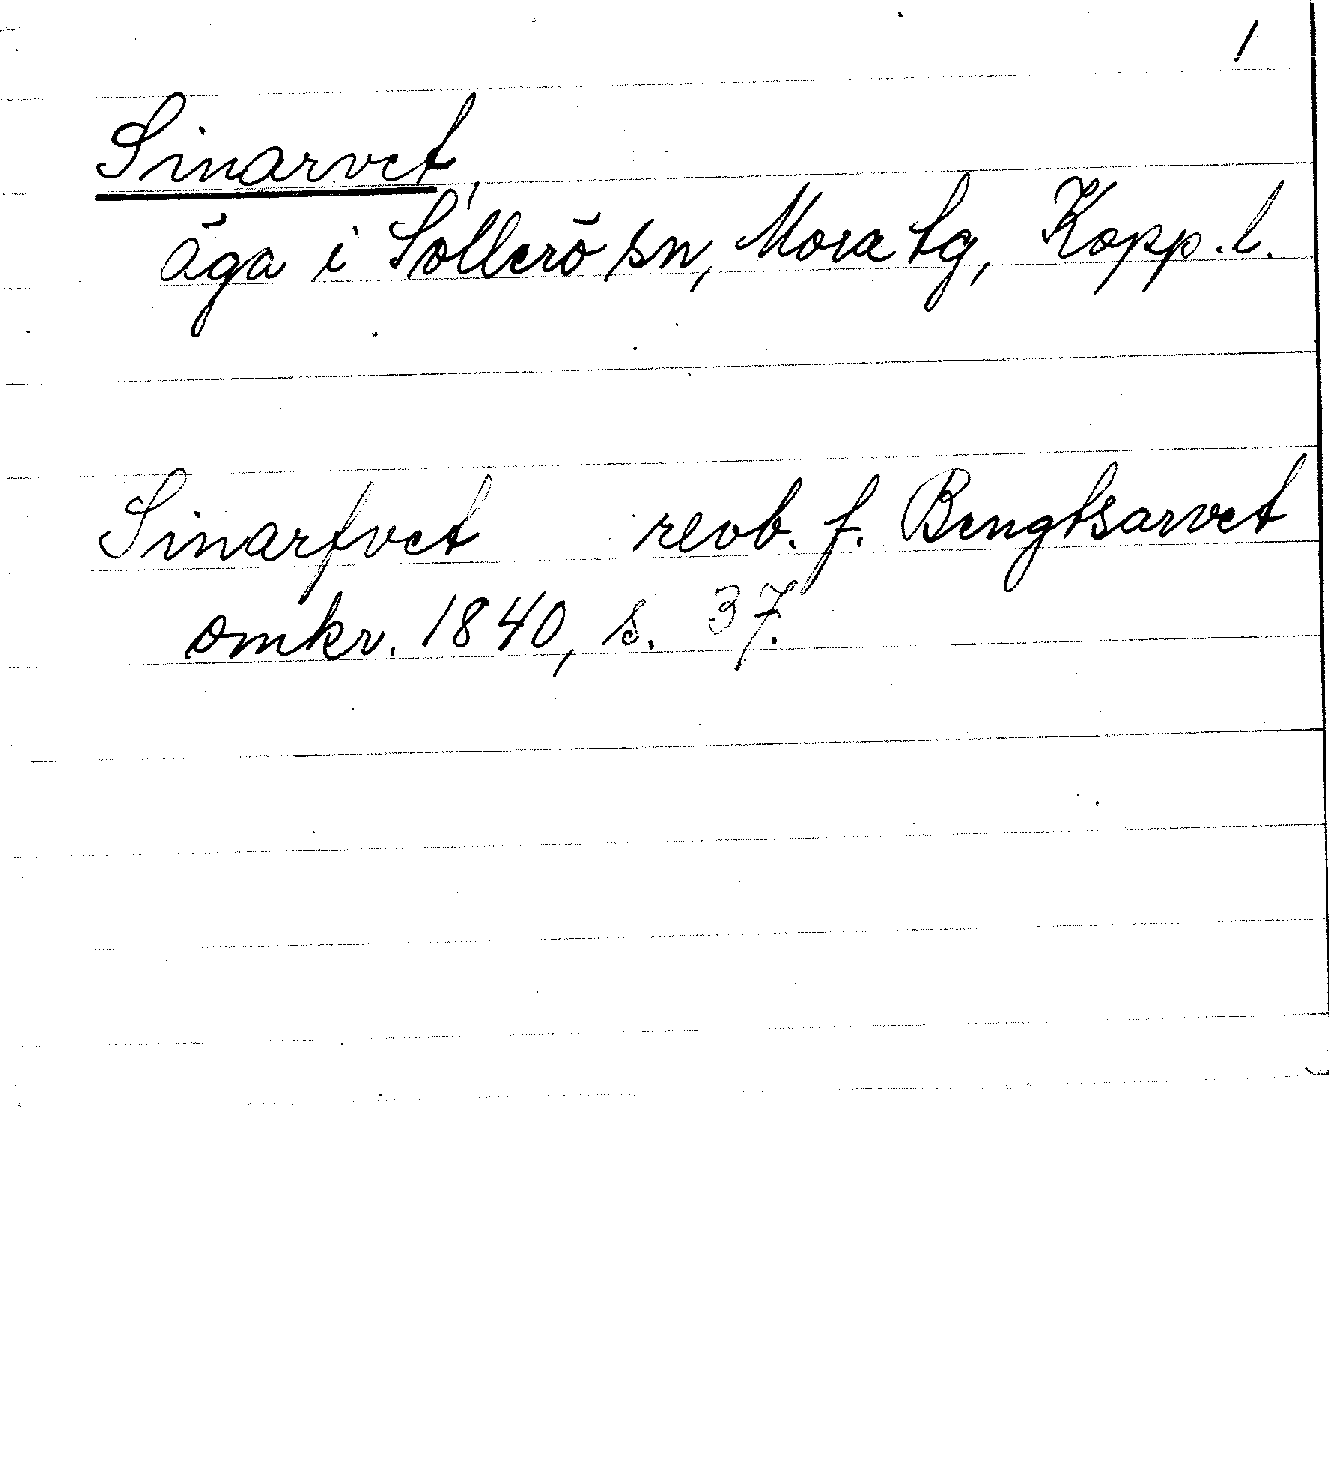 1
Sinarvet,
äga i Sollerö sn, Mora tg, Kopp. l.
Sinarfvet revb. f. Bengtsarvet
omkr. 1840, s. 37.